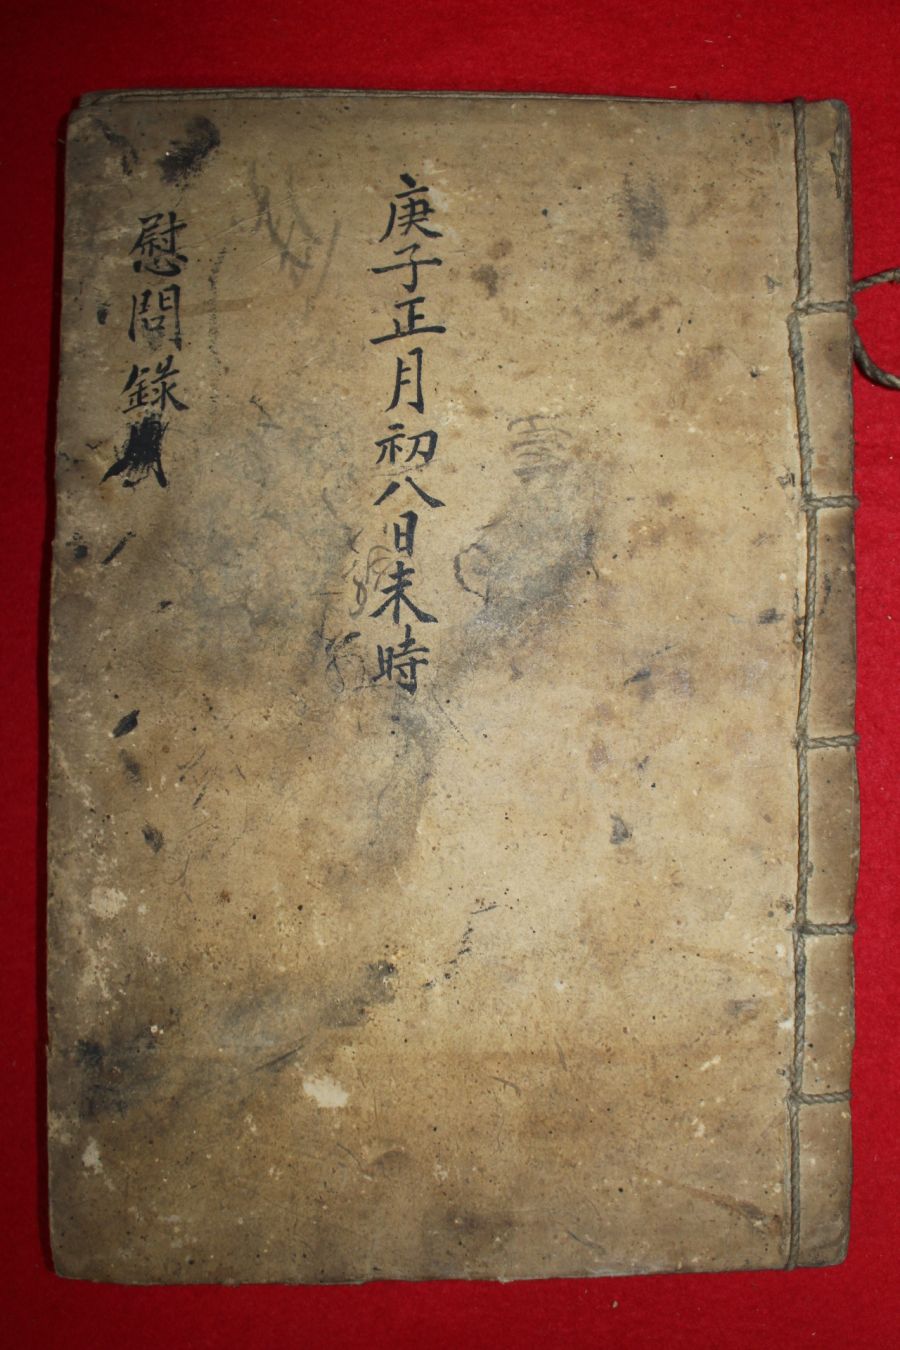 庚子正月初八日未時
慰問錄